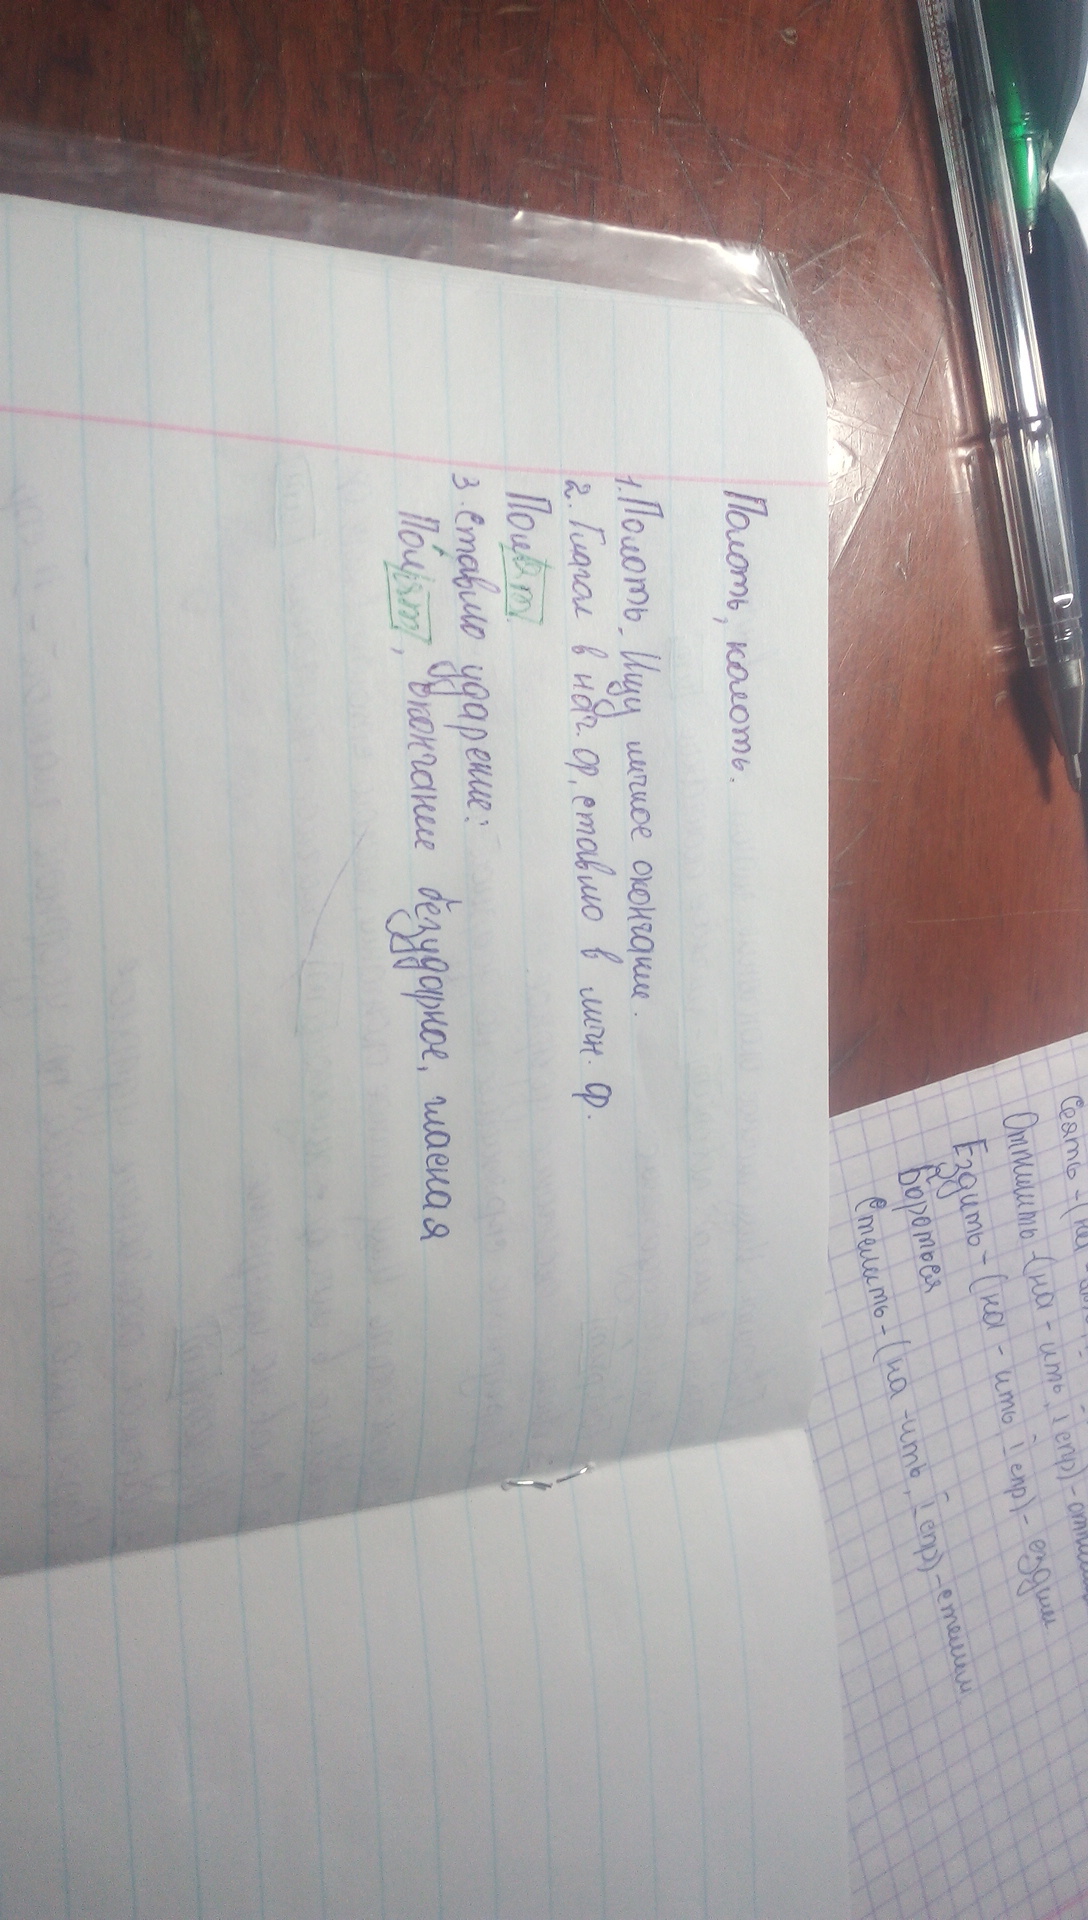 Полоть, колоть.
1. Полоть. Ищу личное окончание.
2. Глагол в нач. ф, ставлю в личн. ф.
Полят
3. Ставлю ударение:
По́лят, окончание безударное, гласная
Сеять - (на
Отпилить - (на - ить, I спр) - отпили
Ездить - (на - ить, I спр) - ездим
Бороться
Стелить - (на - ить, I спр) - стелим